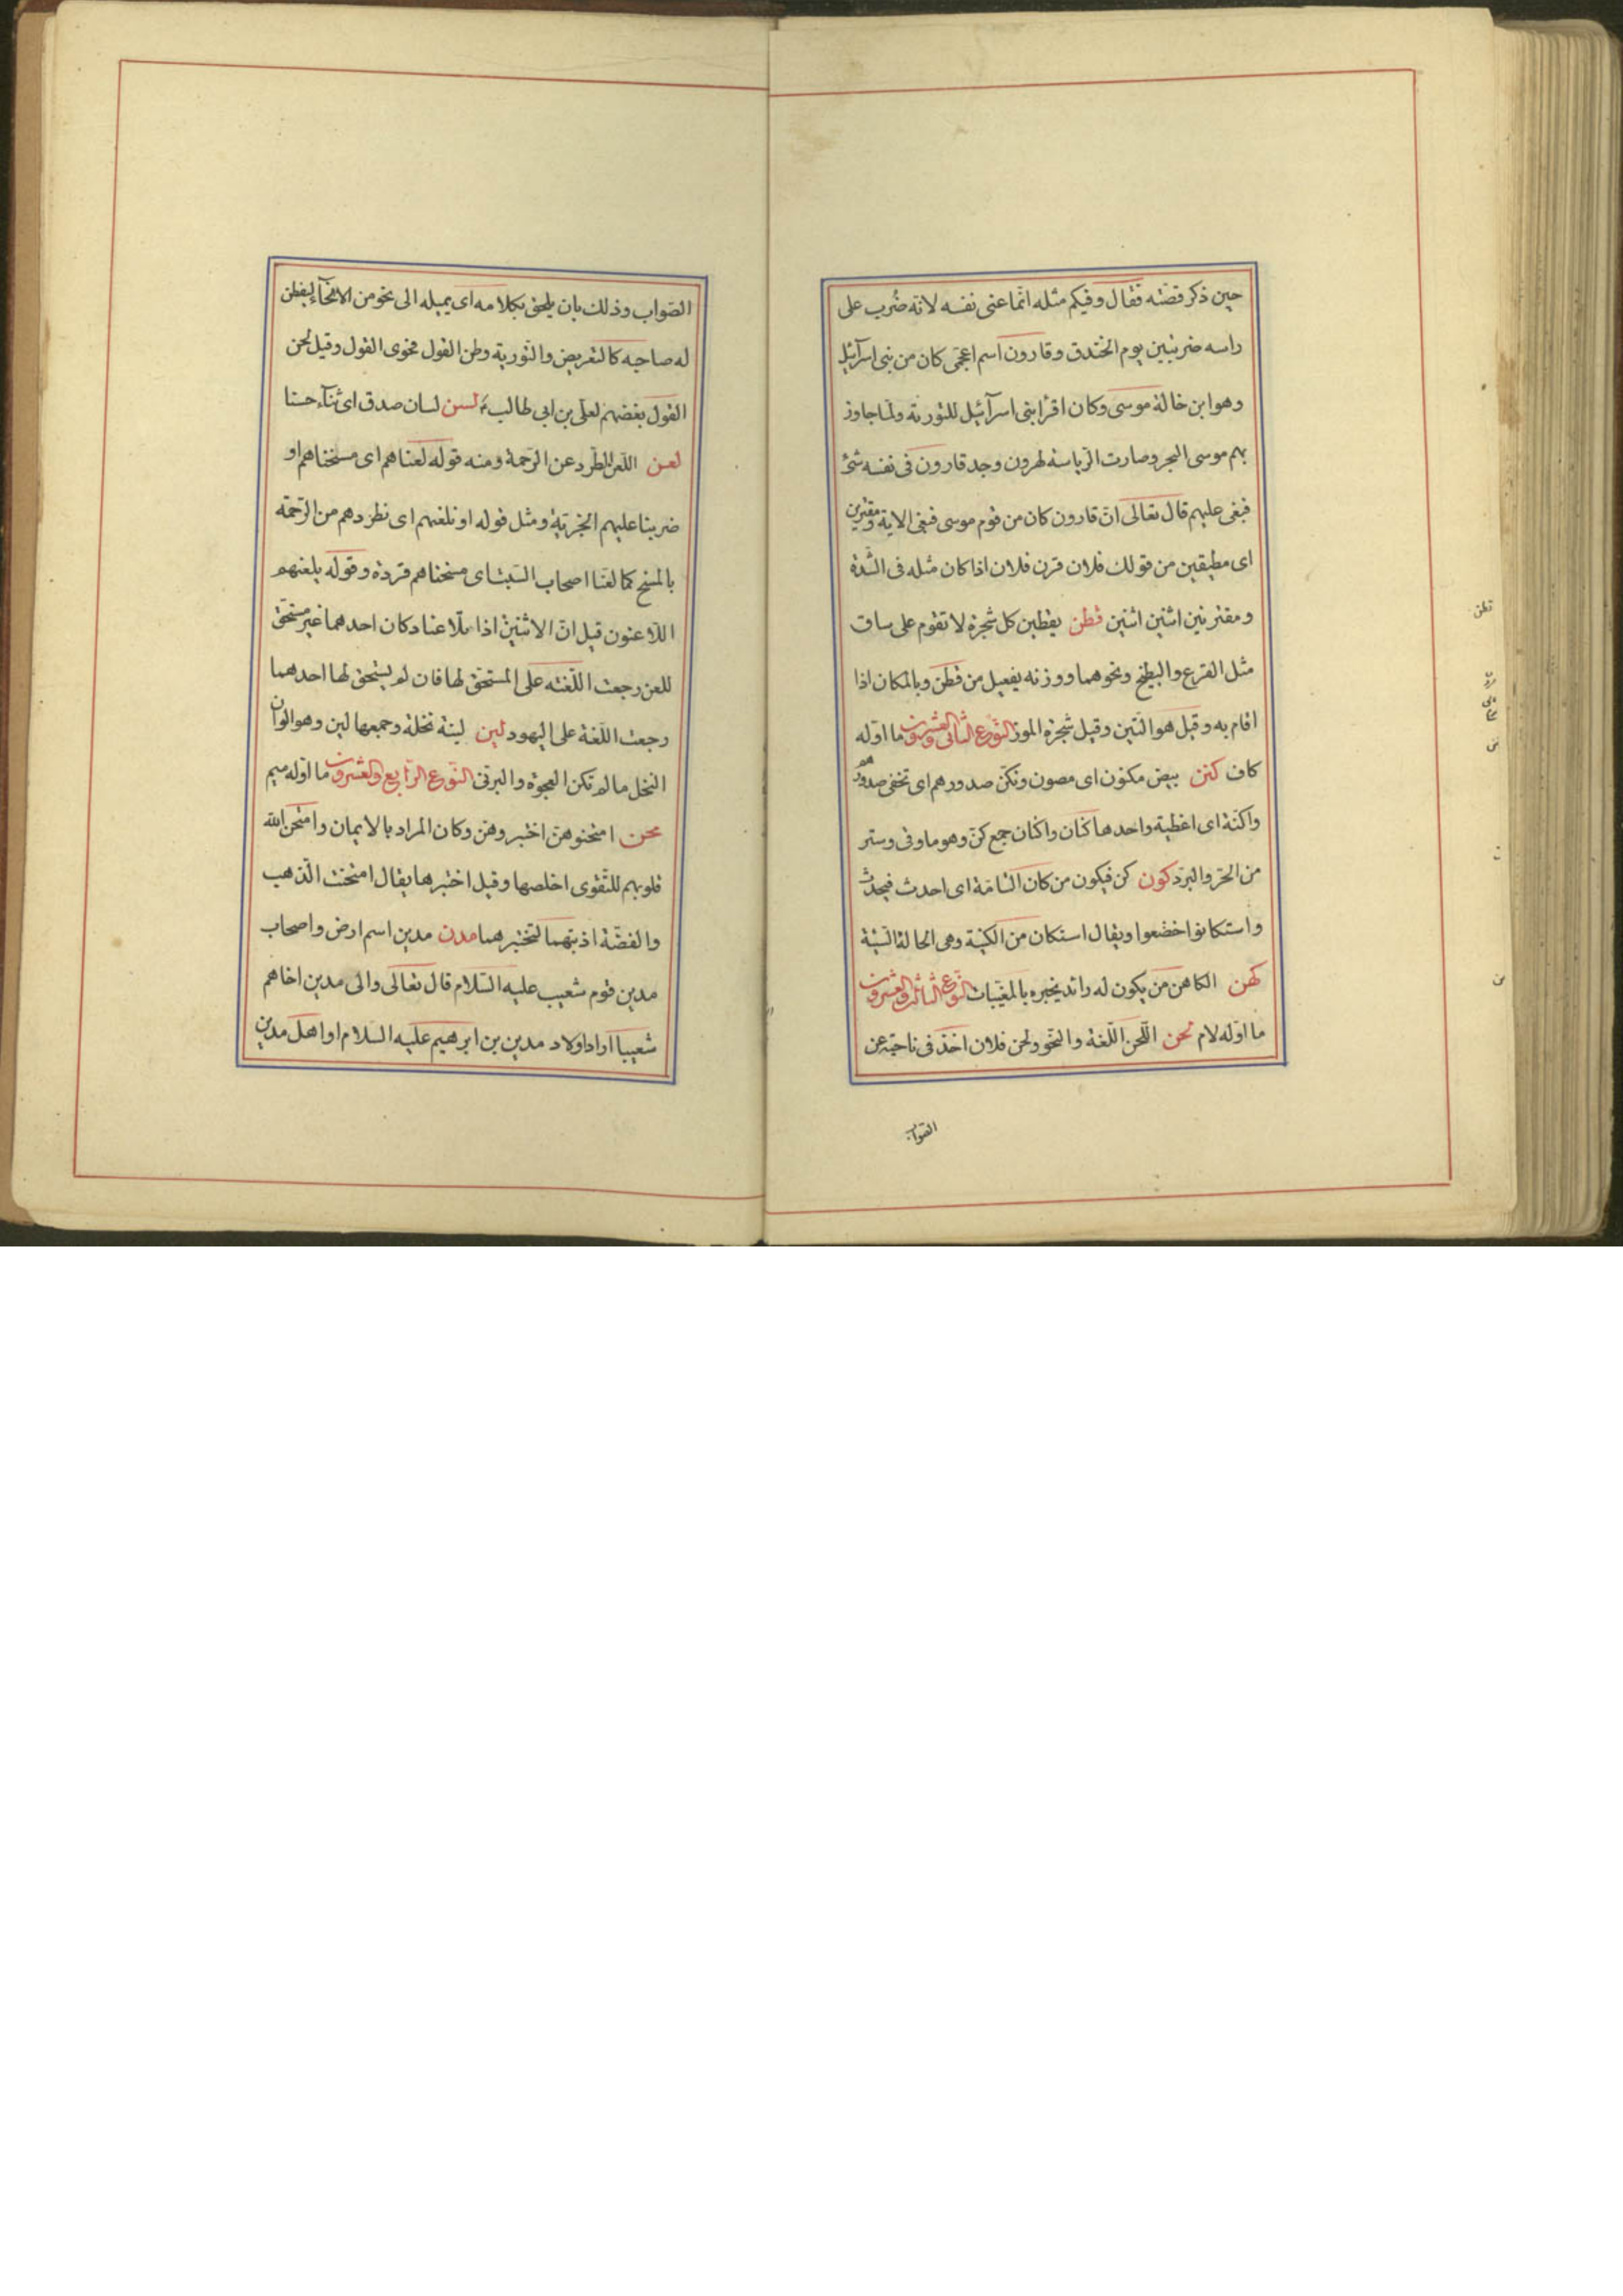 حين ذكر قصّته فقال وفيكم مثله انّما عنى نفسه لانّه ضُرب على
راسه ضربتين يوم الخندق وقارون اسم اعجمى كان من بنى اسرآئيل
وهو ابن خالة موسى وكان اقرأ بنى اسرآئيل للتورية ولمّا جاوز
بهم موسى البحر وصارت الرّياسة لهرون وجد قارون فى نفسه شئ
فبغى عليهم قال تعالى انّ قارون كان من قوم موسى فبغى الاية ومقرنين
اى مطيقين من قولك فلان قرن فلان اذا كان مثله فى الشّدة
ومقترنين اثنين اثنين قطن يقطين كل شجرة لا تقوم على ساق
مثل القرع والبطيخ ونحوهما ووزنه يفعيل من قطن وبالمكان اذا
اقام به وقيل هو التّين وقيل شجرة الموز النّوع الثّانى والعشرون ما اوّله
كاف كنن بيض مكنون اى مصون وتكنّ صدورهم اى تخفى صدورهم
واكنّة اى اغطية واحدها كنان واكنان جمع كنّ وهو ما وقى وستر
من الحرّ والبرد كون كن فيكون من كان التّامّة اى احدث فيحدث
واستكانوا خضعوا ويقال استكان من الكينة وهى الحالة السّيّئة
كهن الكاهن من يكون له رائد يخبره بالمغيّبات النّوع الثالث والعشرون
ما اوّله لام لحن اللّحن اللّغة والنّحو ولحن فلان اخذ فى ناحية عن
الصّواب
قطن
الصّواب وذلك بان يلحن بكلامه اى يميله الى نحو من الانحآء ليفطن
له صاحبه كالتعريض والتّورية ولحن القول فحوى القول وقيل لحن
القول بغضهم لعلى بن ابى طالب ع لسن لسان صدق اى ثنآء حسنا
لعن اللّعن الطّرد عن الرّحمة ومنه قوله لعنّاهم اى مسخناهم او
ضربنا عليهم الجزية ومثل قوله او نلعنهم اى نطردهم من الرّحمة
بالمسخ كما لعنّا اصحاب السّبت اى مسخناهم قردة وقوله يلعنهم
اللّاعنون قيل انّ الاثنين اذا تلاعنا وكان احدهما غير مستحق
للعن رجعت اللّعنة على المستحق لها فان لم يستحق لها احدهما
رجعت اللّعنة على اليهود لين لينة نخلة وجمعها لين وهو الوان
النخل ما لم تكن العجوة والبرنى النّوع الرّابع والعشرون ما اوّله ميم
محن امتحنوهنّ اختبروهنّ وكان المراد بالايمان وامتحن الله
قلوبهم للتّقوى اخلصها وقيل اختبرها يقال امتحنت الذّهب
والفضّة اذبتهما لتختبرهما مدن مدين اسم ارض واصحاب
مدين قوم شعيب عليه السّلام قال تعالى والى مدين اخاهم
شعيبا اراد اولاد مدين بن ابرهيم عليه السلام او اهل مدين